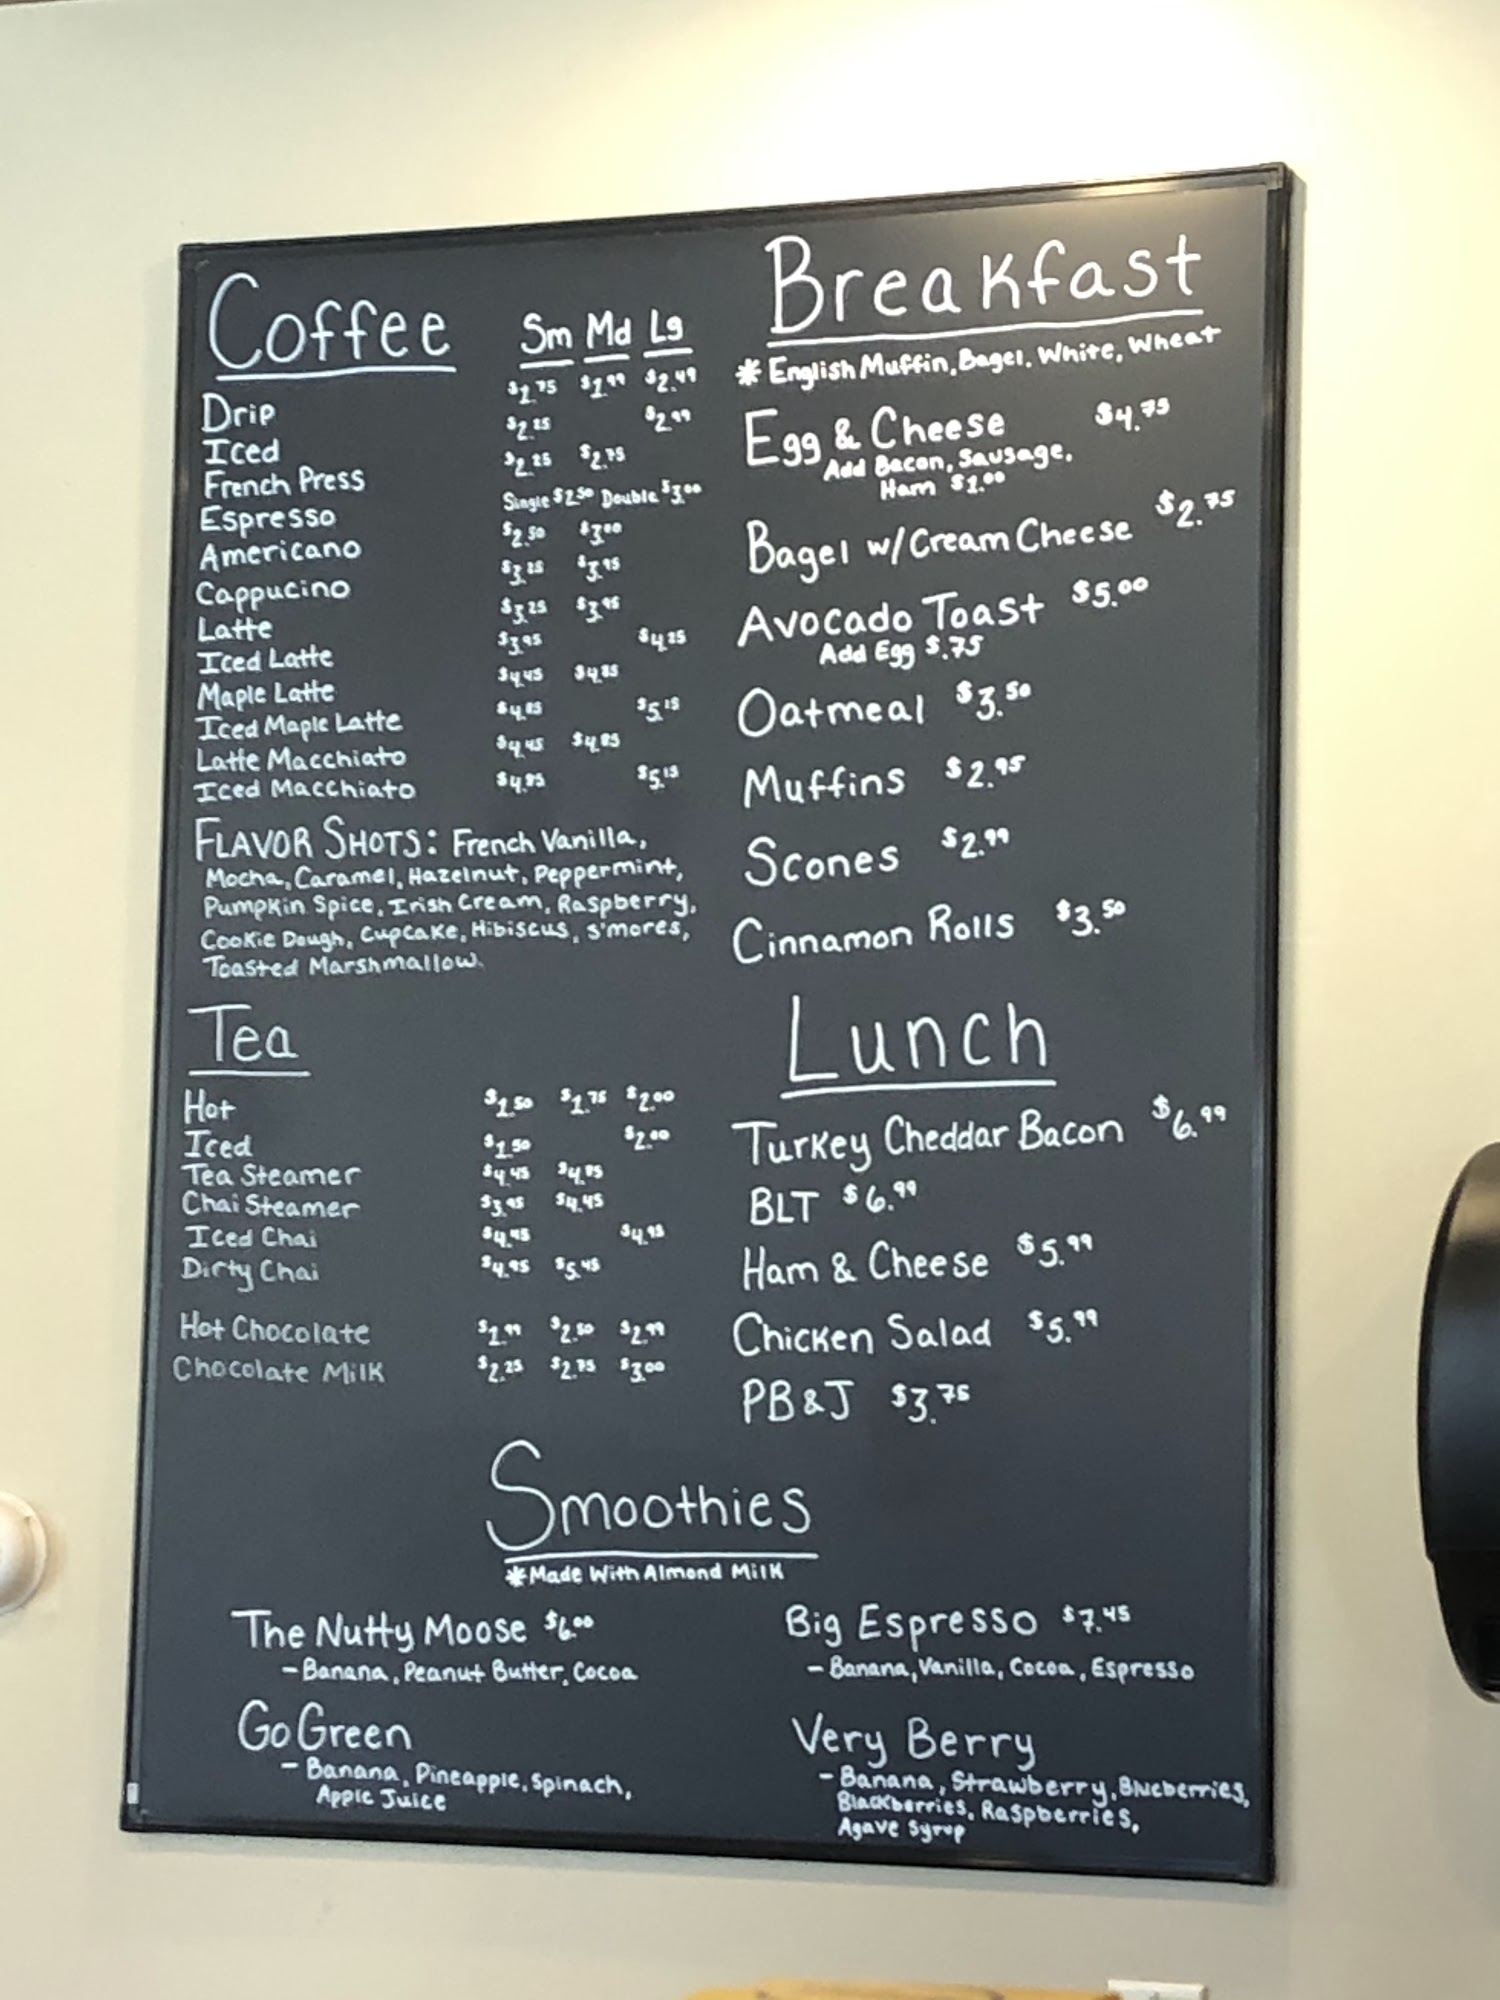 Coffee Sm Md Lg
Drip $1.75 $1.99 $2.49
Iced $2.25 $2.99
French Press $2.25 $2.75
Espresso Single $2.50 Double $3.00
Americano $2.50 $3.00
Cappucino $3.25 $3.95
Latte $3.25 $3.95
Iced Latte $3.95 $4.25
Maple Latte $4.45 $4.85
Iced Maple Latte $4.85 $5.15
Latte Macchiato $4.45 $4.85
Iced Macchiato $4.85 $5.15
FLAVOR SHOTS: French Vanilla,
Mocha, Caramel, Hazelnut, Peppermint,
Pumpkin Spice, Irish Cream, Raspberry,
Cookie Dough, Cupcake, Hibiscus, S'mores,
Toasted Marshmallow.
Tea
Hot $1.50 $1.75 $2.00
Iced $1.50 $2.00
Tea Steamer $4.45 $4.85
Chai Steamer $3.95 $4.45
Iced Chai $4.45 $4.95
Dirty Chai $4.95 $5.45
Hot Chocolate $1.99 $2.50 $2.99
Chocolate Milk $2.25 $2.75 $3.00
Breakfast
* English Muffin, Bagel, White, Wheat
Egg & Cheese $4.75
Add Bacon, Sausage,
Ham $1.00
Bagel w/Cream Cheese $2.75
Avocado Toast $5.00
Add Egg $.75
Oatmeal $3.50
Muffins $2.95
Scones $2.99
Cinnamon Rolls $3.50
Lunch
Turkey Cheddar Bacon $6.99
BLT $6.99
Ham & Cheese $5.99
Chicken Salad $5.99
PB & J $3.75
Smoothies
*Made With Almond Milk
The Nutty Moose $6.00
- Banana, Peanut Butter, Cocoa
Go Green
- Banana, Pineapple, Spinach,
Apple Juice
Big Espresso $7.45
- Banana, Vanilla, Cocoa, Espresso
Very Berry
- Banana, Strawberry, Blueberries,
Blackberries, Raspberries,
Agave Syrup